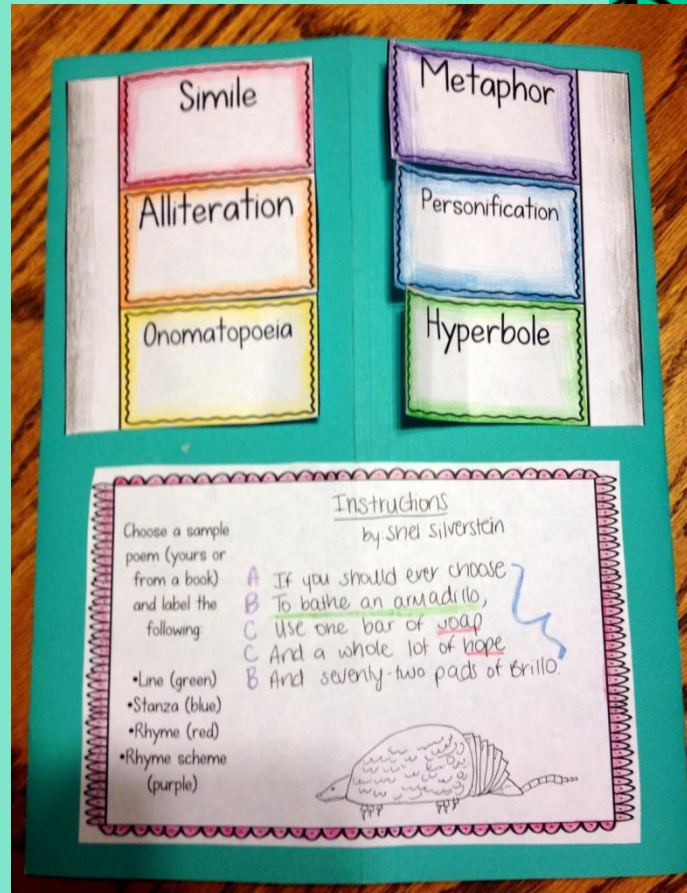 Simile
Metaphor
Alliteration
Personification
Onomatopoeia
Hyperbole
Choose a sample
poem (yours or
from a book)
and label the
following:
•Line (green)
•Stanza (blue)
•Rhyme (red)
•Rhyme scheme
(purple)
Instructions
by Shel Silverstein
A If you should ever choose
B To bathe an armadillo,
C Use one bar of soap
C And a whole lot of hope
B And seventy-two pads of Brillo.